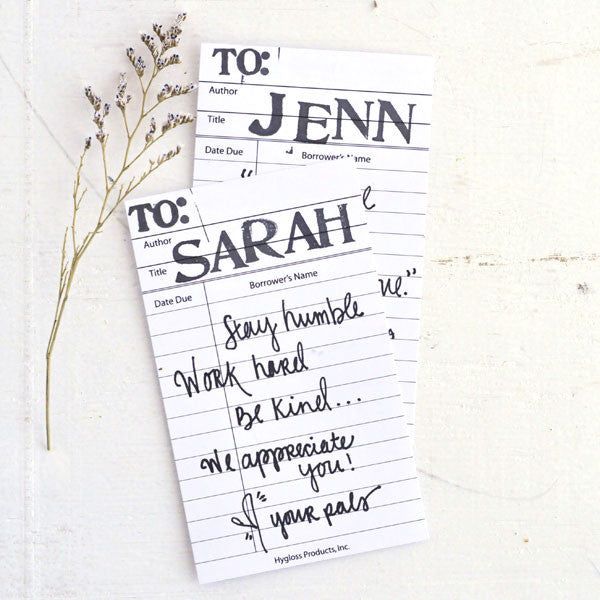 TO:
Author
JENN
Title
Date Due Borrower's Name
TO:
Author
SARAH
Title
Date Due Borrower's Name
Stay humble
Work hard
Be kind...
We appreciate
you!
your pals
Hygloss Products, Inc.